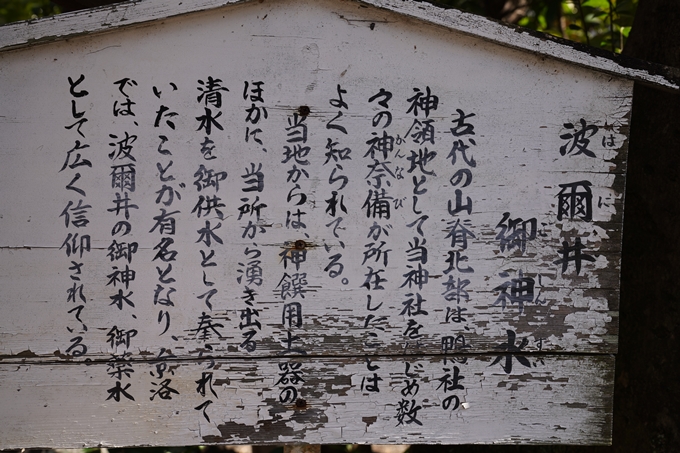 波爾井
御神水
古代の山脊北部は、鴨社の
神領地として当神社をじめ数
々の神奈備が所在したことは
よく知られでいる。
当地からは、神饌用土器の
ほかに、当所から湧き出る
清水を御供水として奉られて
いたことが有名となり、京洛
では、波爾井の御神水、御薬水
として広く信仰されている